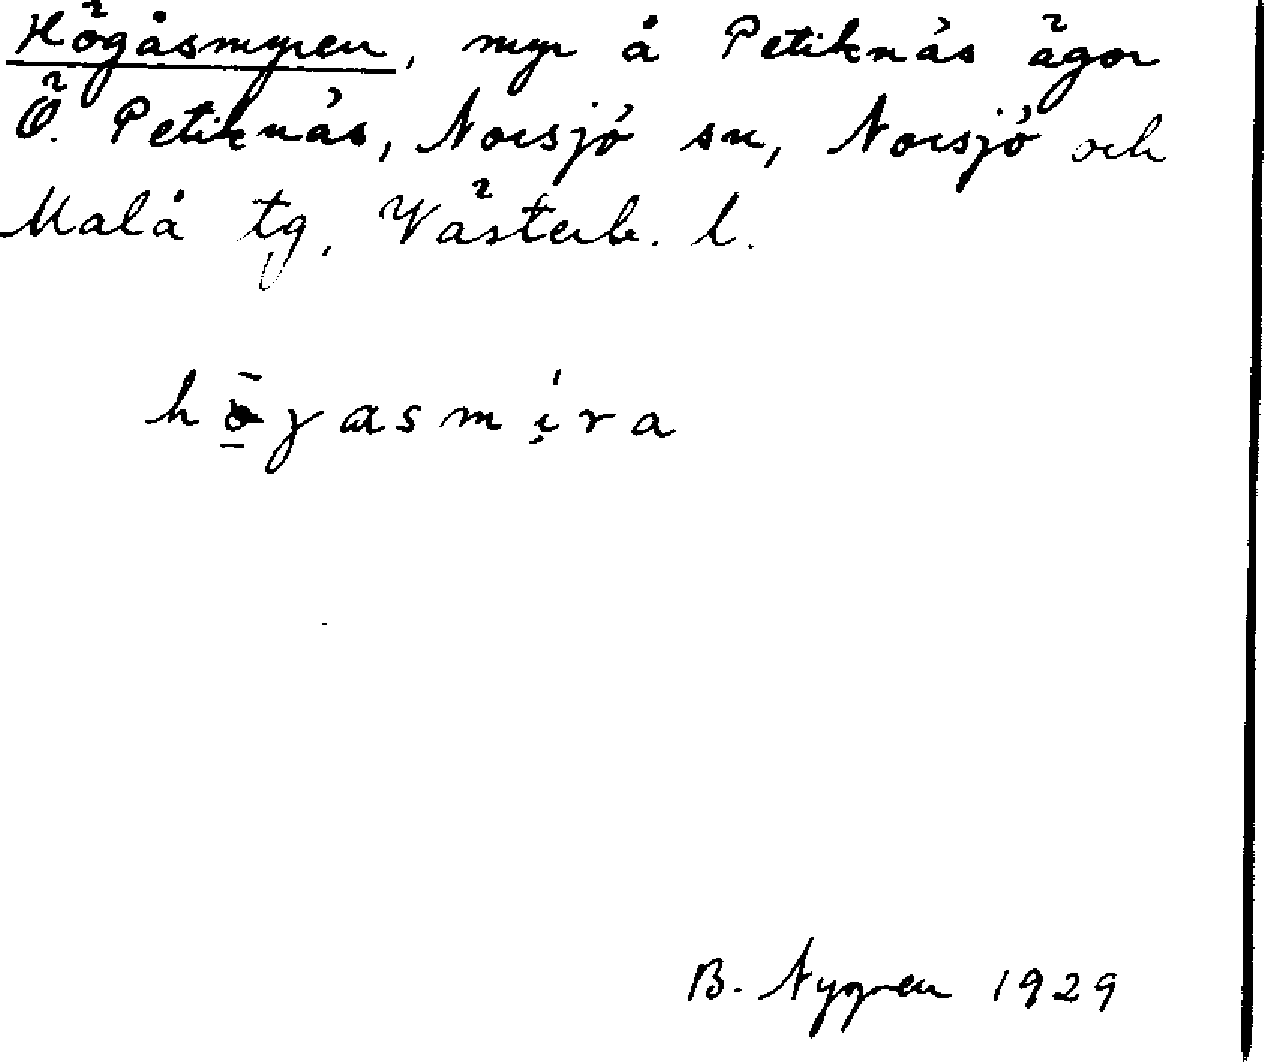 Högåsmyren, myr å Petiknäs ägor
Ö. Petiknäs, Norsjö sn, Norsjö och
Malå tg, Västerb. l.
högasmira
B. Nygren 1929